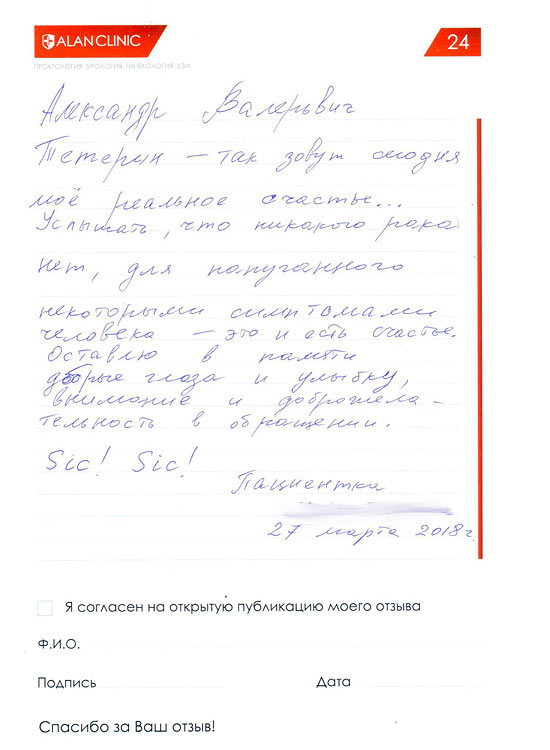 ALANCLINIC
24
ПРОКТОЛОГИЯ. УРОЛОГИЯ. ГИНЕКОЛОГИЯ. УЗИ.
Александр Валерьвич
Тетерин – так зовут сегодня
моё реальное счастье...
Услышать, что никакого рака
нет, для напуганного
некоторыми симптомами
человека – это и есть счастье.
Оставлю в памяти
добрые глаза и улыбку,
внимание и доброжела-
тельность в обращении.
Sic! Sic!
Пациентка
27 марта 2018г.
Я согласен на открытую публикацию моего отзыва
Ф.И.О.
Подпись
Дата
Спасибо за Ваш отзыв!